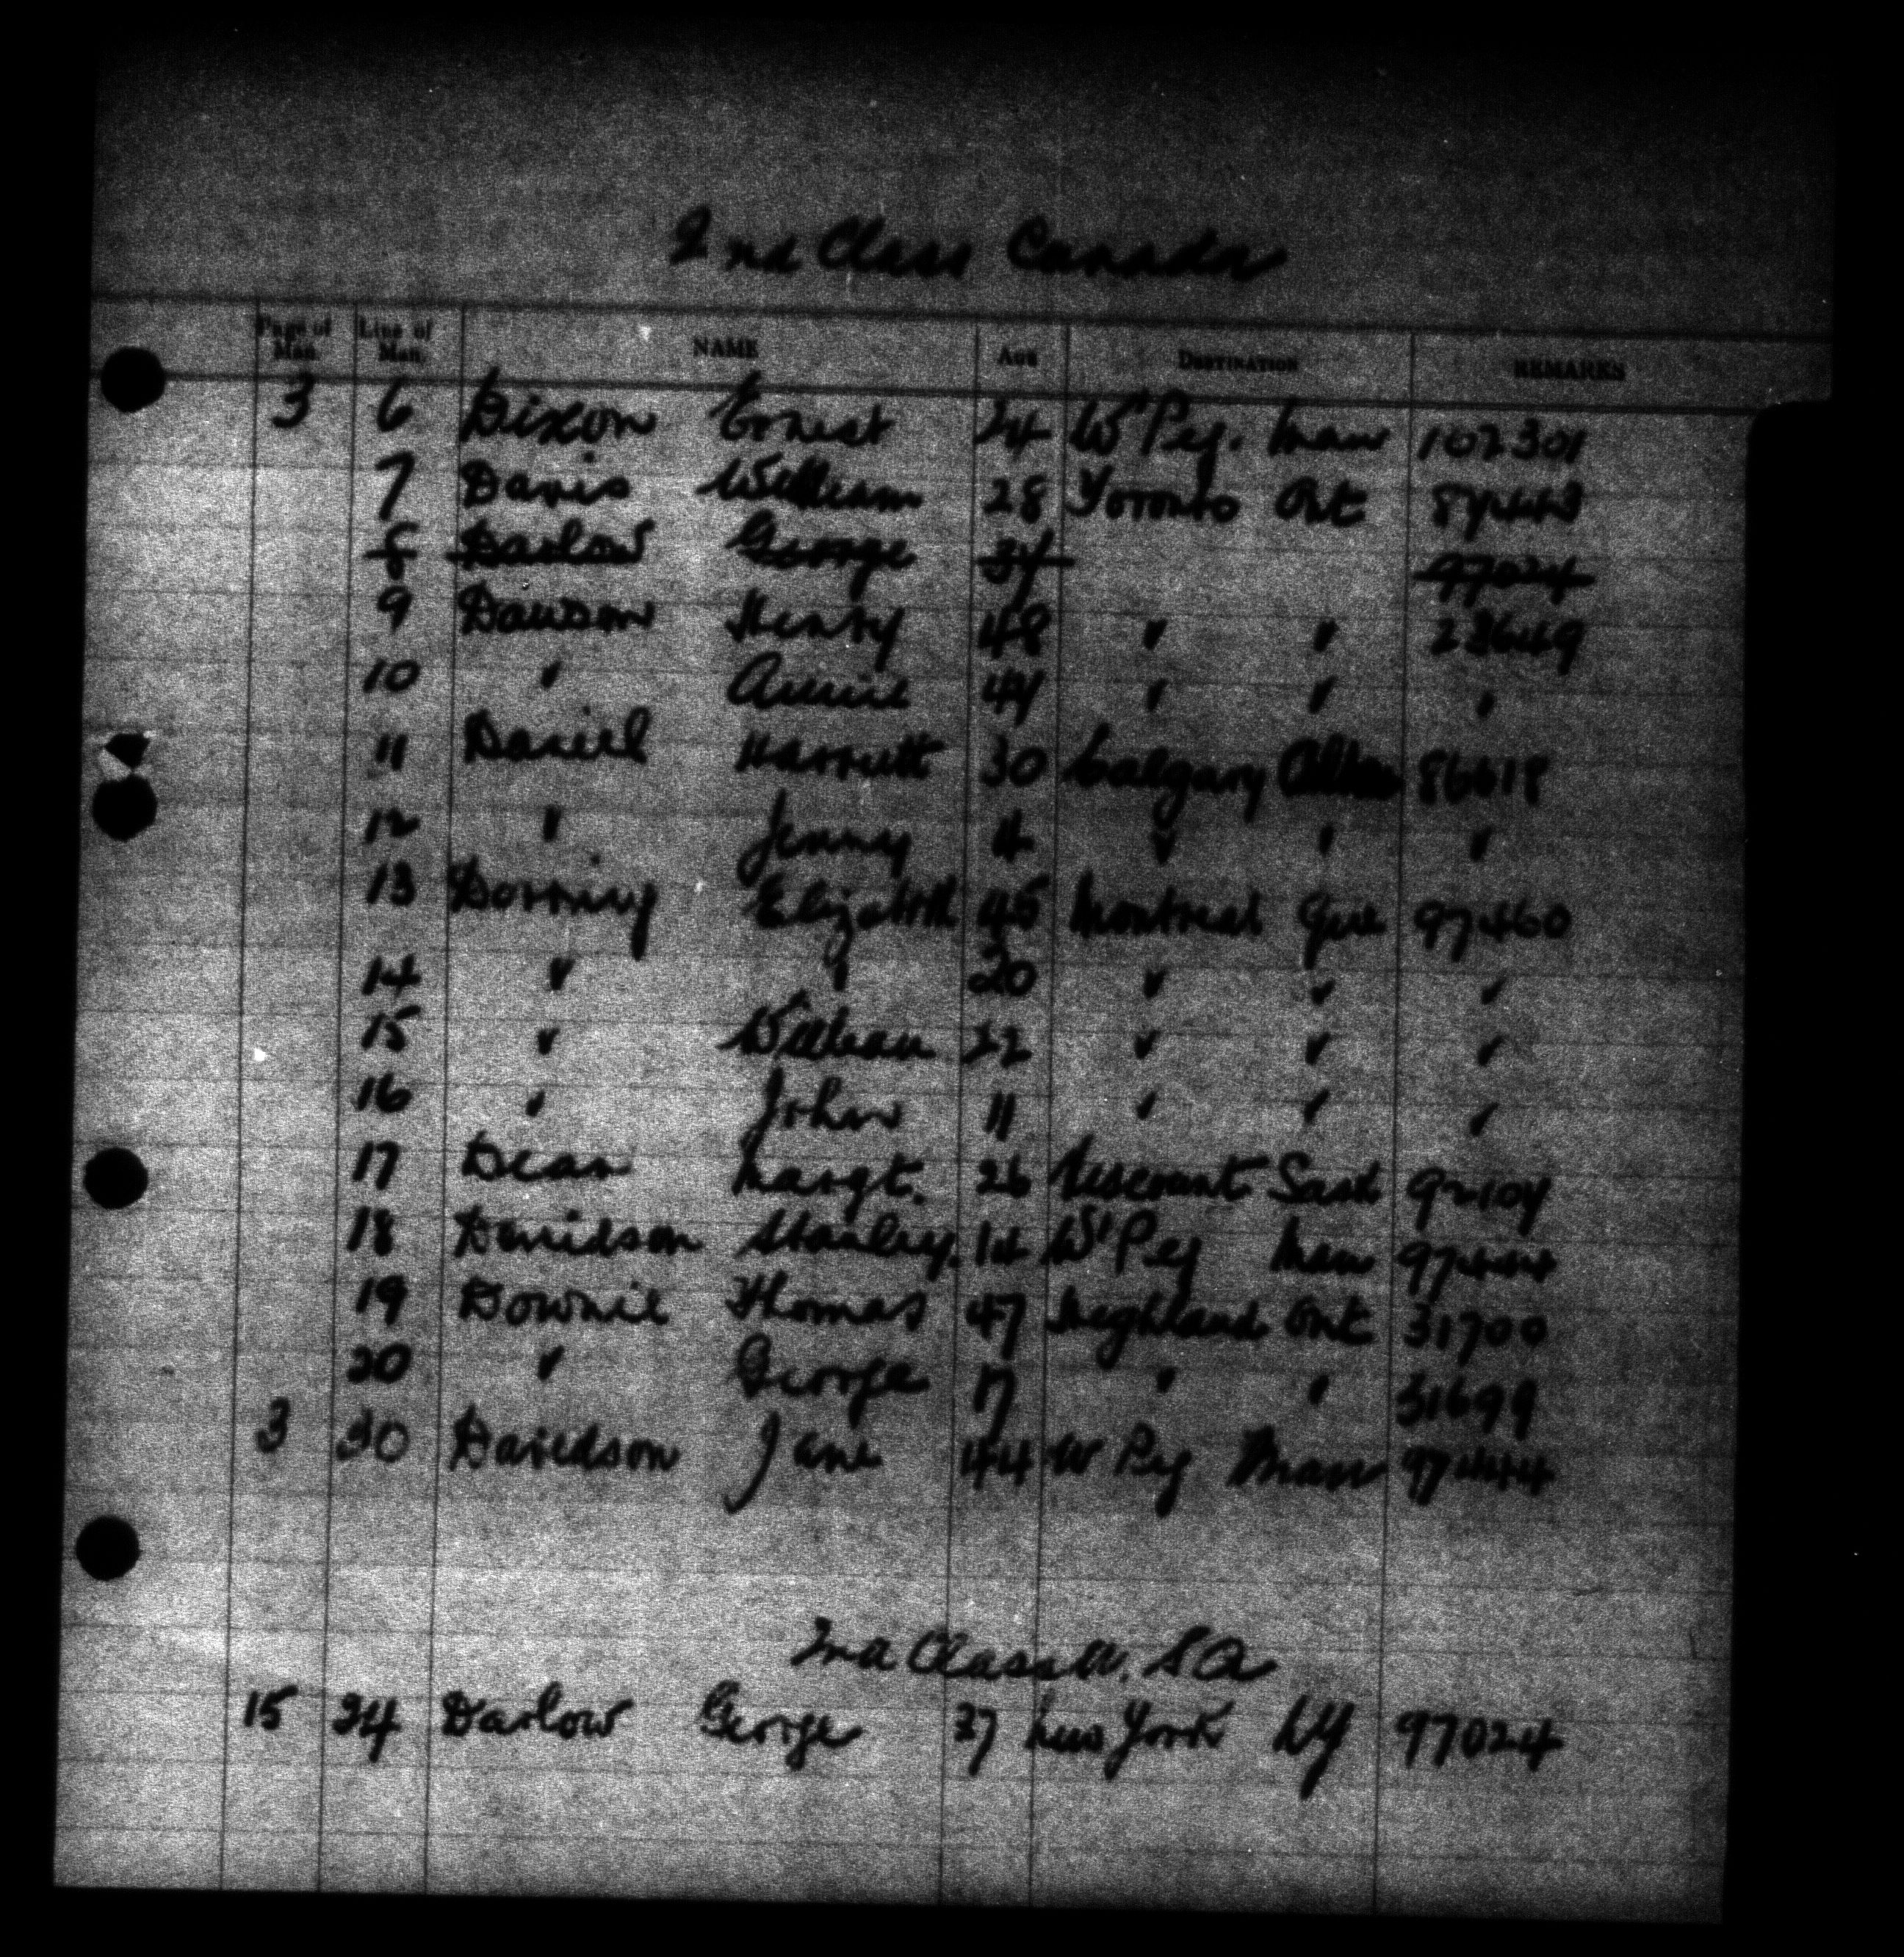 2nd Class Canada
Page of Man. Line of Man. NAME AGE DESTINATION REMARKS
3 6 Dixon Ernest 24 W'Peg. Man 102301
7 Davis William 28 Toronto Ont 87443
8 Darlow George 37 97024
9 Dawson Henry 48 " " 28649
10 " Annie 44 " " "
11 Daniel Harriett 30 Calgary Alba 86618
12 " Jenny 4 " " "
13 Dorning Elizabeth 45 Montreal Que 97460
14 " " 20 " " "
15 " William 22 " " "
16 " John 11 " " "
17 Dean Margt. 26 Viscount Sask 92104
18 Davidson Stanley. 14 W'Peg Man 97444
19 Downie Thomas 47 Highland Ont 31700
20 " George 17 " " 31699
3 30 Davidson Jane 44 W Peg Man 97444
2nd Class U.S.A
15 24 Darlow George 37 New York NY 97024